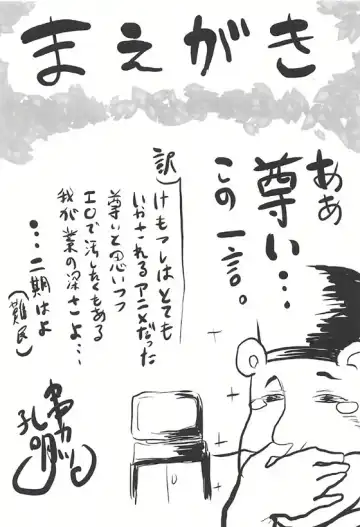 まえがき
ああ
尊い…
この一言。
訳
けもっしはとても
いやされるアニメだった
尊いと思いつつ
エロで汚したくもある
我が業の深さよ…
…二期はよ
(難民)
串カツ
孔明